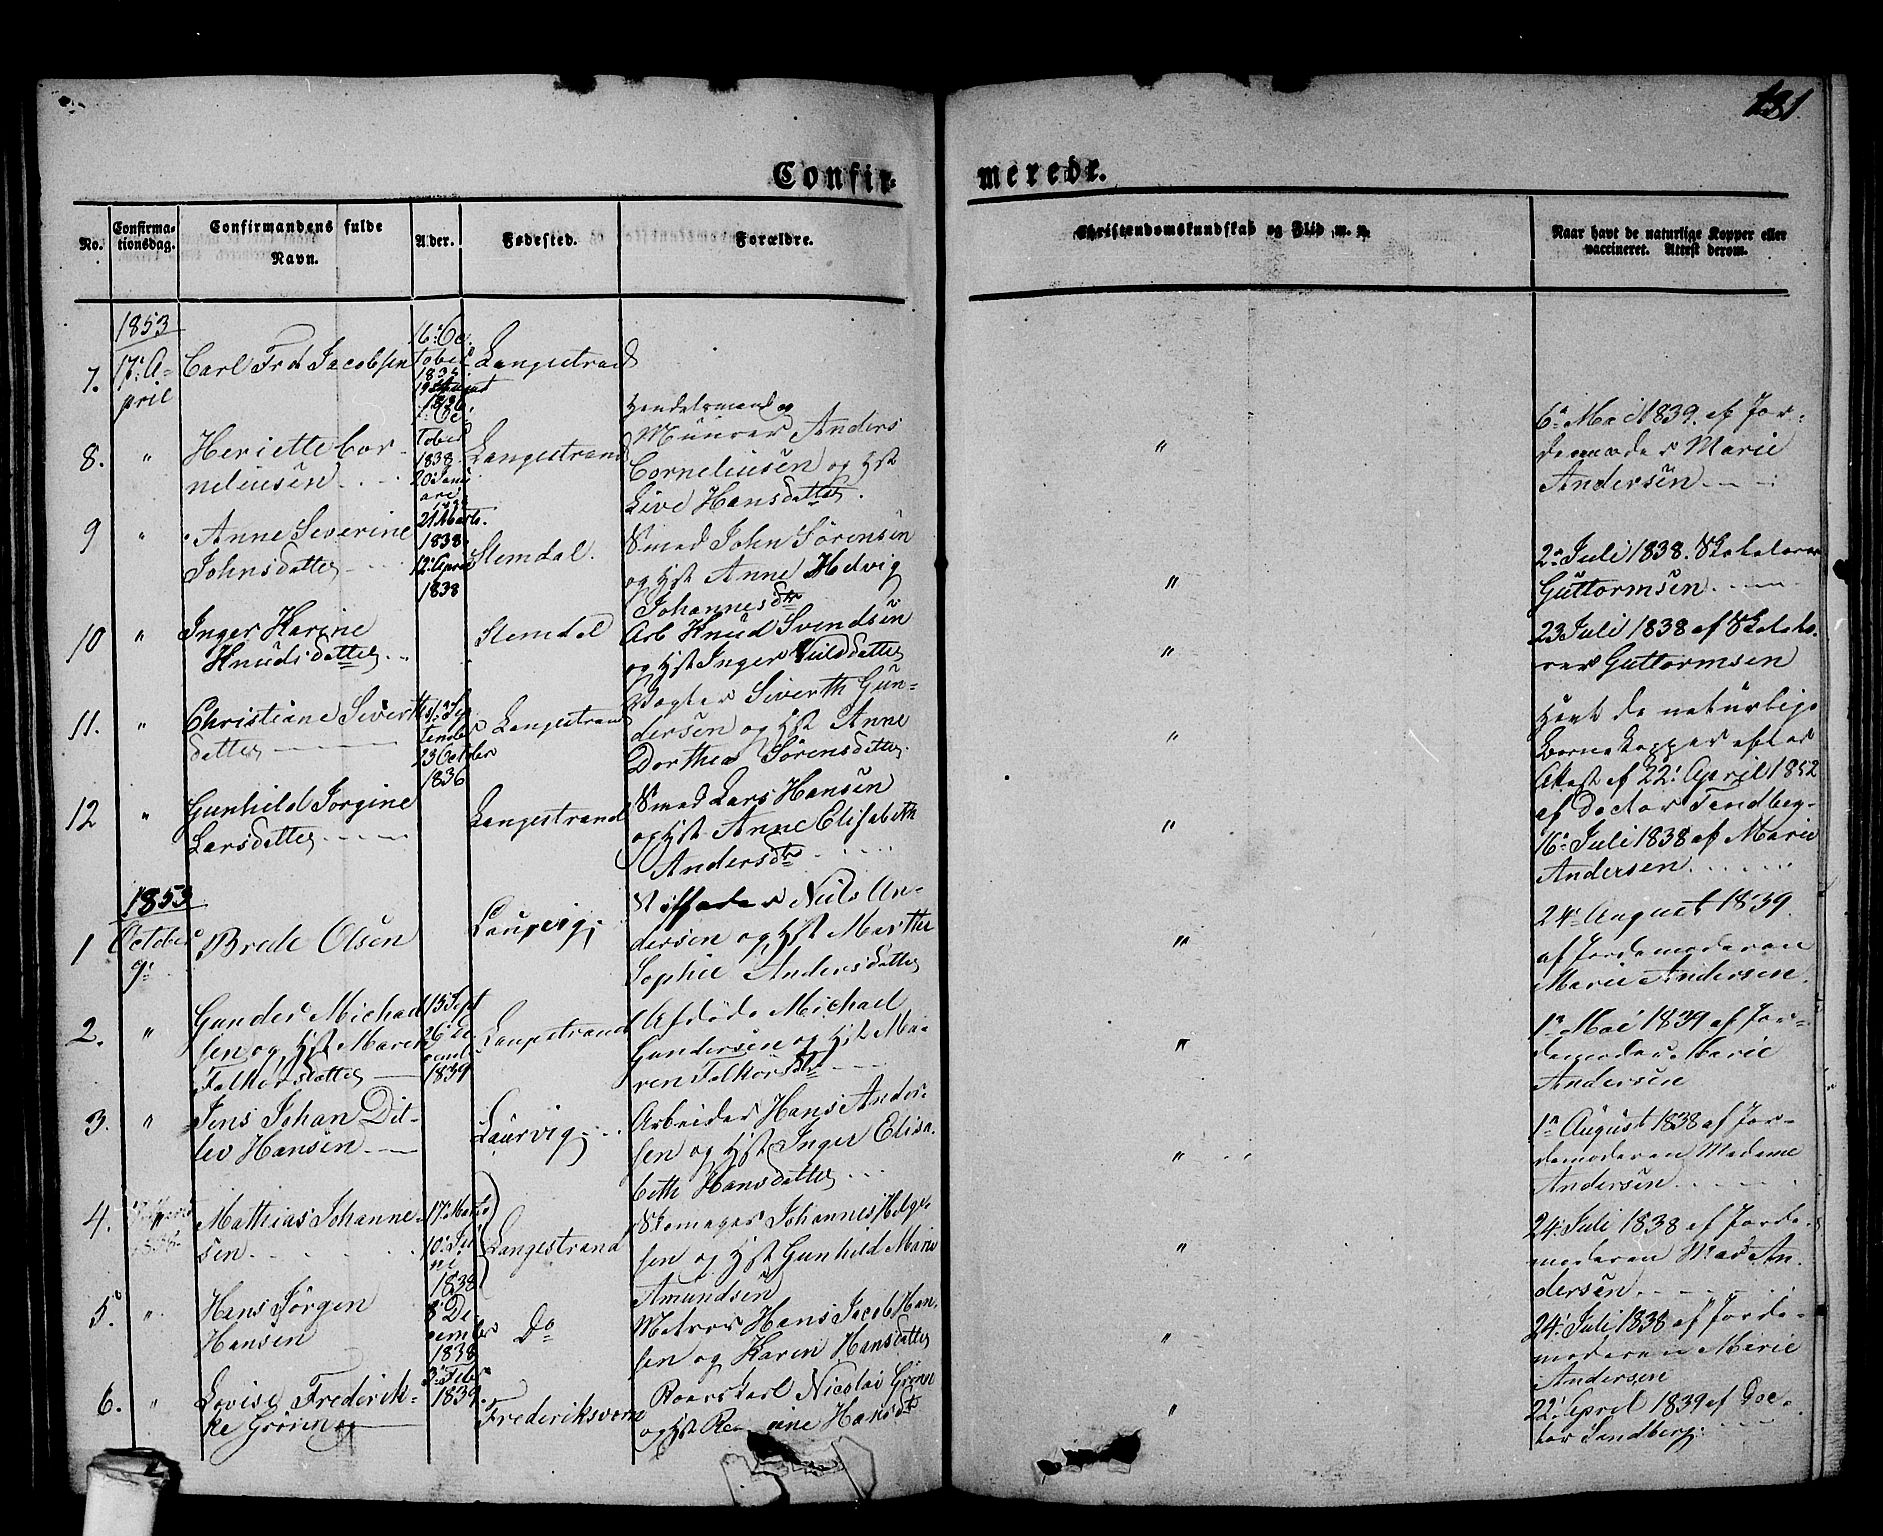 131.
Confir-
merede.
No.
Confirma-
tionsdag.
Confirmandens fulde
Navn.
Alder.
Fødested.
Forældre.
Christendomskundskab og Flid m. v.
Naar havt de naturlige Kopper eller
vaccineret. Attest derom.
1853
7.
17: A-
pril
Carl Fred Jacobsen
16: Oc:
tober
Langestrad
8.
"
Heriette Cor-
neliusen
tober
1838
Langestrand
Handelsmand og
Muurer Anders
Corneliusen og Hst
Live Hansdatter.
"
6te Mai 1839. af Jor-
demoder Marie
Andersen
9
"
Anne Severine
Johnsdatter
21 Marts.
1838
Stemdal.
Smed John Sörensen
og Hst Anne Helvig
Johannesdtr
"
2n Juli 1838. Skolelærer
Guttormsen
10
"
Inger Karine
Knudsdatter
12: April
1838
Stemdal
Arb Knud Svendsen
og Hst Inger
"
23 Juli 1838 af Skolelæ-
rer Guttormsen
11.
"
Christiane Siverth
datter
tember
Langestrand
Vogter Siverth Gun-
dersen og Hst Anne
Dorthea Sörensdatter
"
Havt de naturlige
Börnekopper efter
Attest af 22: April 1852
af Doctor Sandberg
12
"
Gunhild Jorgine
Larsdatter
23 October
1836
Langestrand
Smed Lars Hansen
og Hst Anne Elisabeth
Andersdtr
"
16n Juli 1838 af Marie
Andersen
1853
1
October
9:
Brede Olsen
Laurvig
Stiffader Niels An-
dersen og Hst Marthe
Sophie Andersdatter
"
24: August 1839
af Jordemoderen
Marie Andersen.
2.
"
Gunder Michael
sen og Hst Maren
Falkorsdatter
15 Sept
1839
Langestrand
Afdöde Michael
Gundersen og Hst Ma-
ren Falkorsdtr
"
1n Mai 1839 af Jor-
demoder Marie
Andersen
3.
"
Jens Johan Dit-
lev Hansen
Laurvig
Arbeider Hans Ander-
sen og Hst Inger Elisa-
beth Hansdatter
"
1n August 1838 af Jor-
demoderen Madame
Andersen
4.
"
Mathias Johanne-
sen
17: Marts
10: Ju
ni
1838
Langestrand
Skomager Johannes Helge-
sen og Hst Gunhild Marie
Amundsen
"
24: Juli 1838 af Jorde-
moderen Mad: An-
dersen
5.
"
Hans Jörgen
Hansen
8: De
cember
1838
Do
Matros Hans Jacob Han-
sen og Karen Hansdatter
"
24: Juli 1838 af Jorde-
moderen Marie
Andersen
6.
"
Lovise Frederik-
ke Gronn
3: Febr
1839.
Frederiksvern
Roerskarl Nicolai Gronn
og Hst Hansdtr
"
22: April 1839 af Doc-
tor Sandberg.